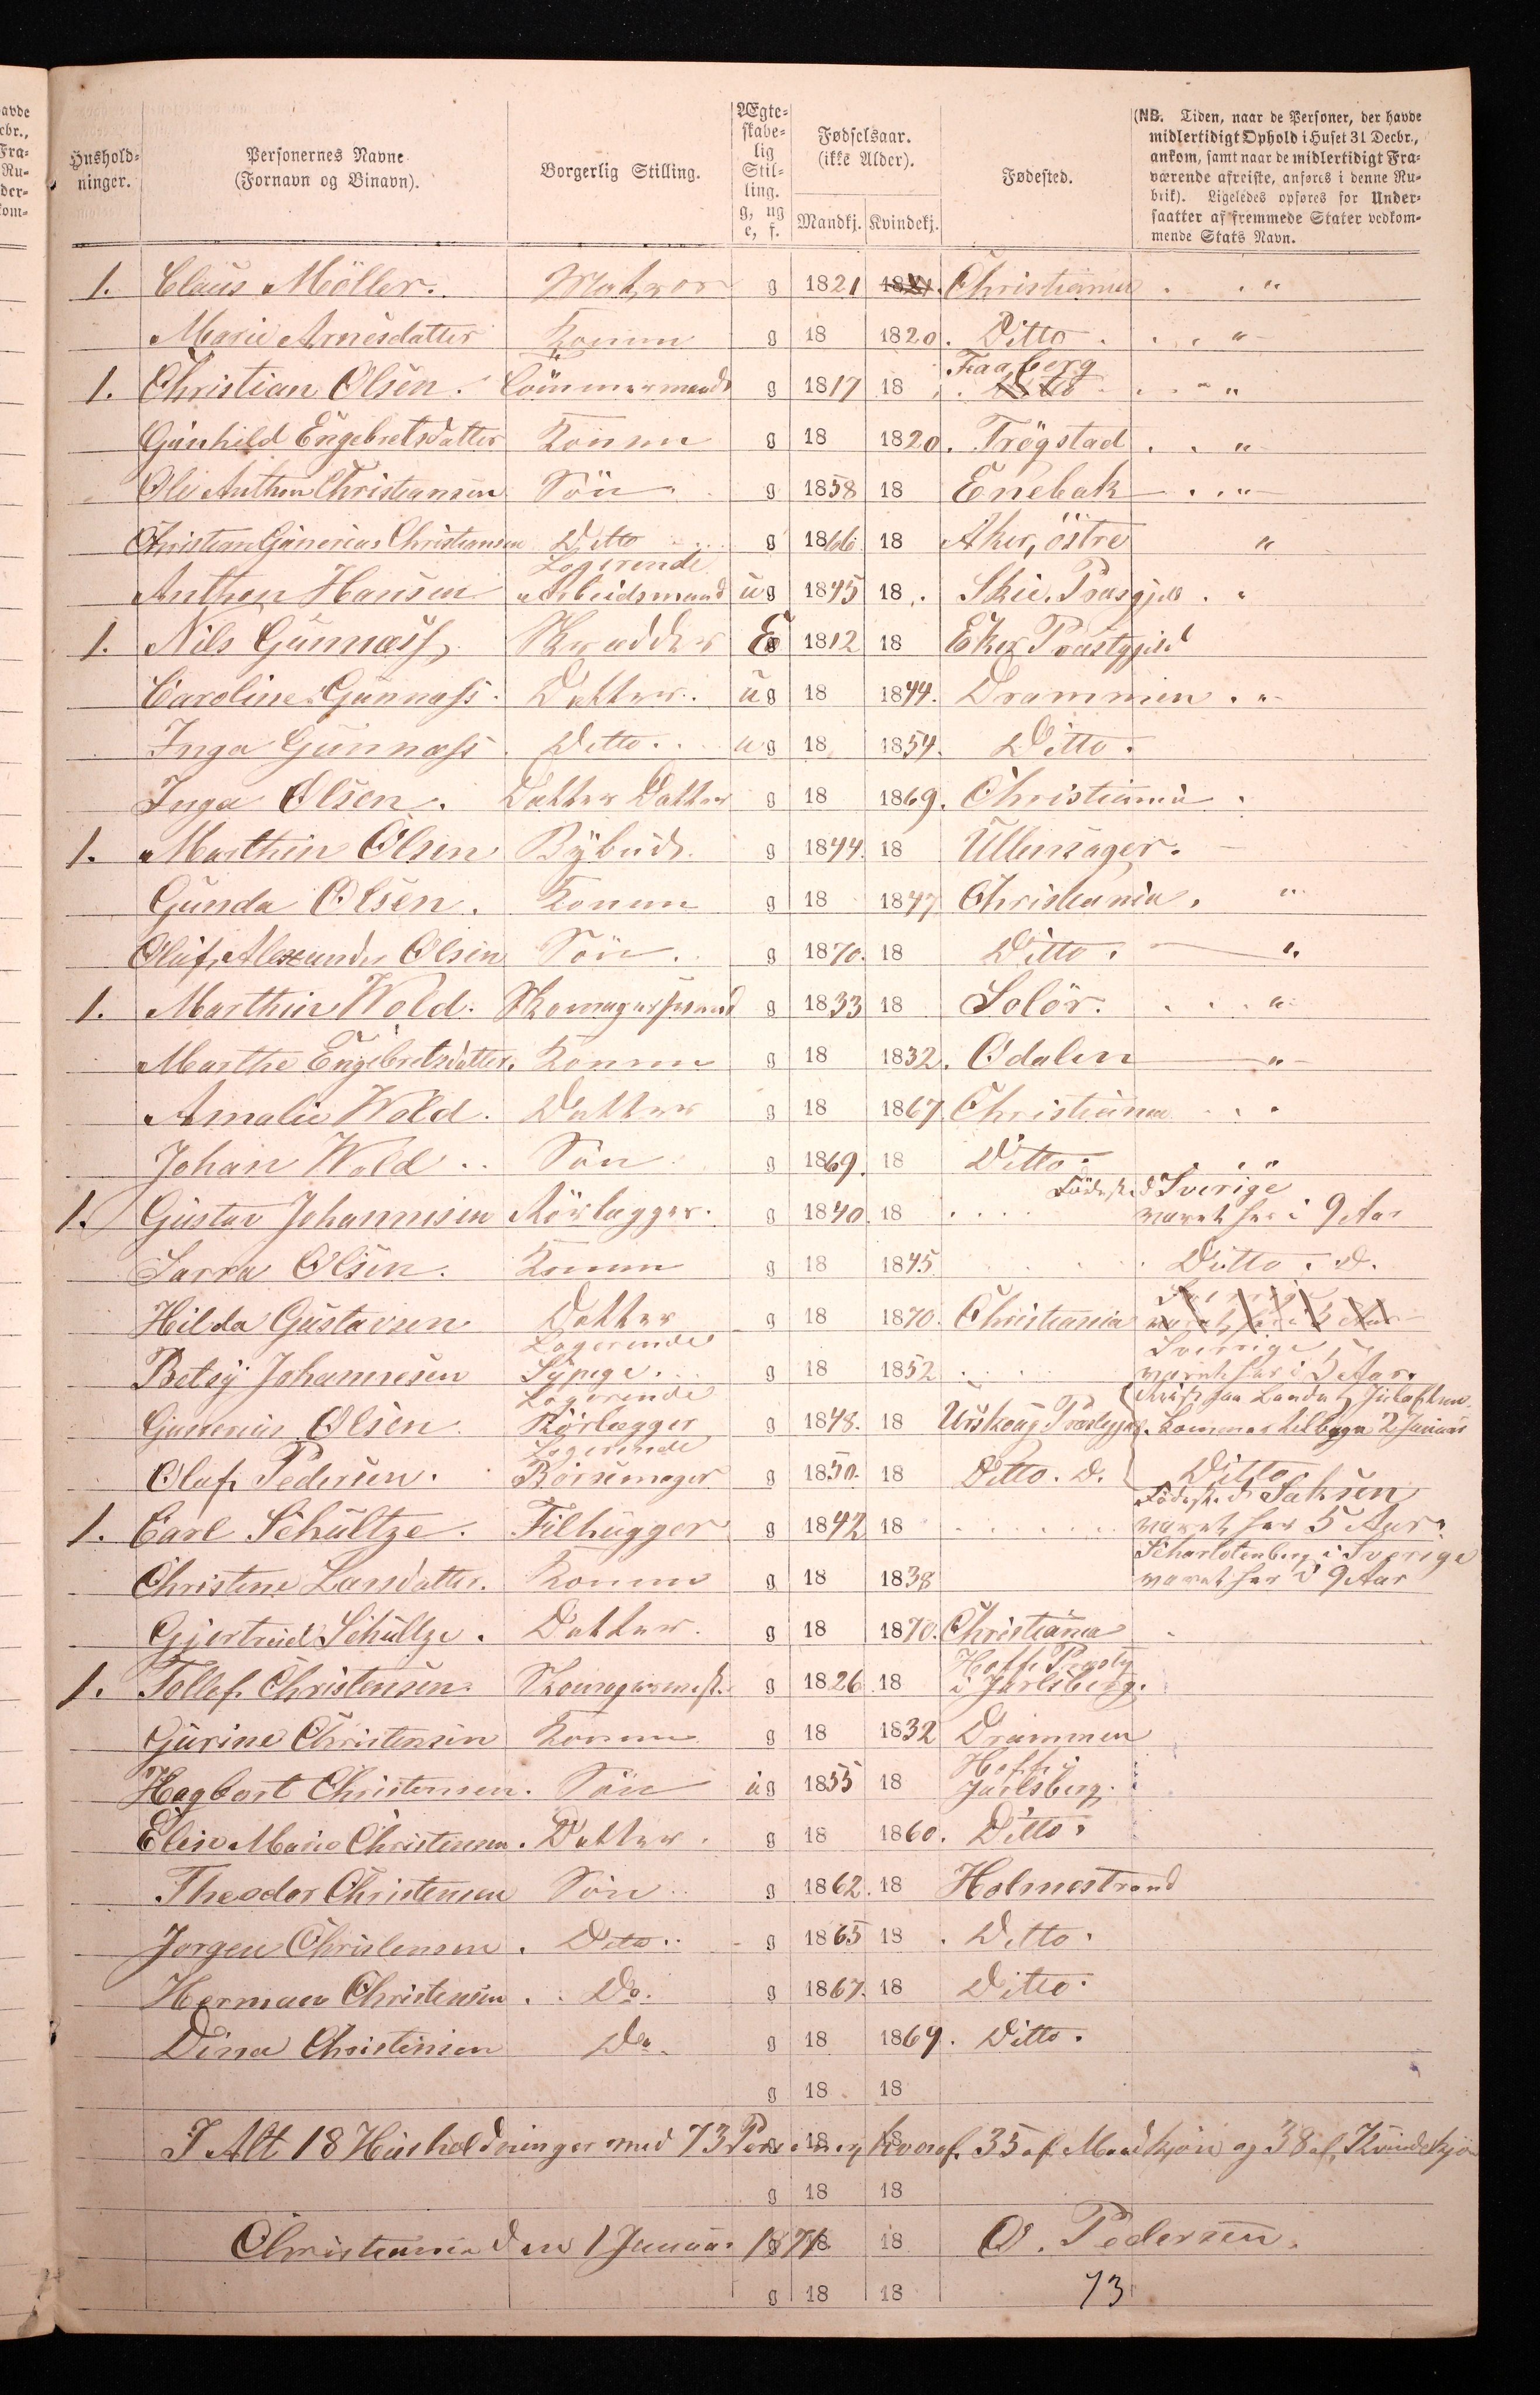 Hushold-
ninger.
Personernes Navne
(Fornavn og Binavn).
Borgerlig Stilling.
Ægte-
skabe-
lig
Stil-
ling.
g, ug
e, f.
Fødselsaar.
(ikke Alder).
Mandkj. Kvindekj.
Fødested.
(NB. Tiden, naar de Personer, der havde
midlertidigt Ophold i Huset 31 Decbr.,
ankom, samt naar de midlertidigt Fra-
værende afreiste, anføres i denne Ru-
brik). Ligeledes opføres for Under-
saatter af fremmede Stater vedkom-
mende Stats Navn.
1. Claus Möller. g 1821 Christiania "
Marie Arnesdatter Konen g 18 1820. Ditto. "
1. Christian Olsen. Tömmermand g 1817 18 Faaberg "
Gunhild Engebretsdatter Konen g 18 1820. Trögstad "
Ole Anthon Christiansen Sön g 1858 18 Enebak "
Christian Gunerius Christiansen Ditto g 1866 18 Aker, östre "
Anthon Hansen Logerende Arbeidsmand ug 1845 18 Skie. Præsgjeld "
1. Nils Gunnass, Skrædder E 1812 18 Eker Præstgjeld
Caroline Gunnass. Datter. ug 18 1844. Drammen "
Inga Gunnass. Ditto. ug 18 1854. Ditto.
Inga Olsen. Datter Datter g 18 1869. Christiania
1. Marthin Olsen Bybud. g 1844. 18 Ullensager.
Gunda Olsen. Konen g 18 1847 Christiania. "
Oluf Alexander Olsen Sön. g 1870. 18 Ditto. "
1. Marthin Wold. Skomagersvend g 1833 18 Solör. "
Marthe Engebretsdatter. Konen g 18 1832. Odalen "
Amalie Wold. Datter g 18 1867. Christiania
Johan Wold Sön g 1869. 18 Ditto. "
1. Gustav Johannisen Rörlægger. g 1840. 18 Födested Sverige
varet her i 9 Aar
Sarra Olsen. Konen g 18 1845 Ditto. D.
Hilda Gustavsen Datter g 18 1870. Christiania
Betsy Johannesen Logerende Sypige. g 18 1852 Sverrige
varet her i 5 Aar.
Gunerius Olsen Logerende Rörlægger g 1848. 18 Urskoug Præstegj. Reist paa Landet Juleaften.
Kommer tilbage 2 Januar
Oluf Pedersen. Logerende Börsemager g 1850. 18 Ditto. D. Ditto
1. Carl Schultze. Filhugger g 1842 18 Födested Saksen
varet her 5 Aar.
Christine Larsdatter. Konen g 18 1838 Scharlotenberg i Sverige
varet her i 9 Aar
Gjertrud Schultze. Datter. g 18 1870. Christiania
1. Tollef Christensen. Skomagermest. g 1826 18 Hoff Præstg
i Jarlsberg.
Gurine Christensen Konen g 18 1832 Drammen
Hagbart Christensen. Sön ug 1855 18 Hoff i
Jarlsberg.
Elise Marie Christensen. Datter. g 18 1860. Ditto.
Theodor Christensen Sön g 1862. 18 Holmestrand
Jorgen Christensen. Ditto. g 1865 18 Ditto.
Herman Christensen. Do. g 1867. 18 Ditto.
Dina Christensen Do. g 18 1869. Ditto.
g 18 18
I Alt 18 Husholdninger med 73 Personer, hvoraf 35 af Mandkjön og 38 af Kvindekjön
g 18 18
Christiania den 1 Januar 1871. 18 O. Pedersen.
g 18 18 73